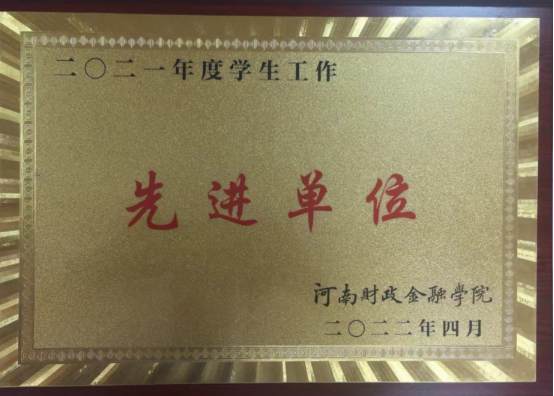 二〇二一年度学生工作
先进单位
河南财政金融学院
二〇二二年四月